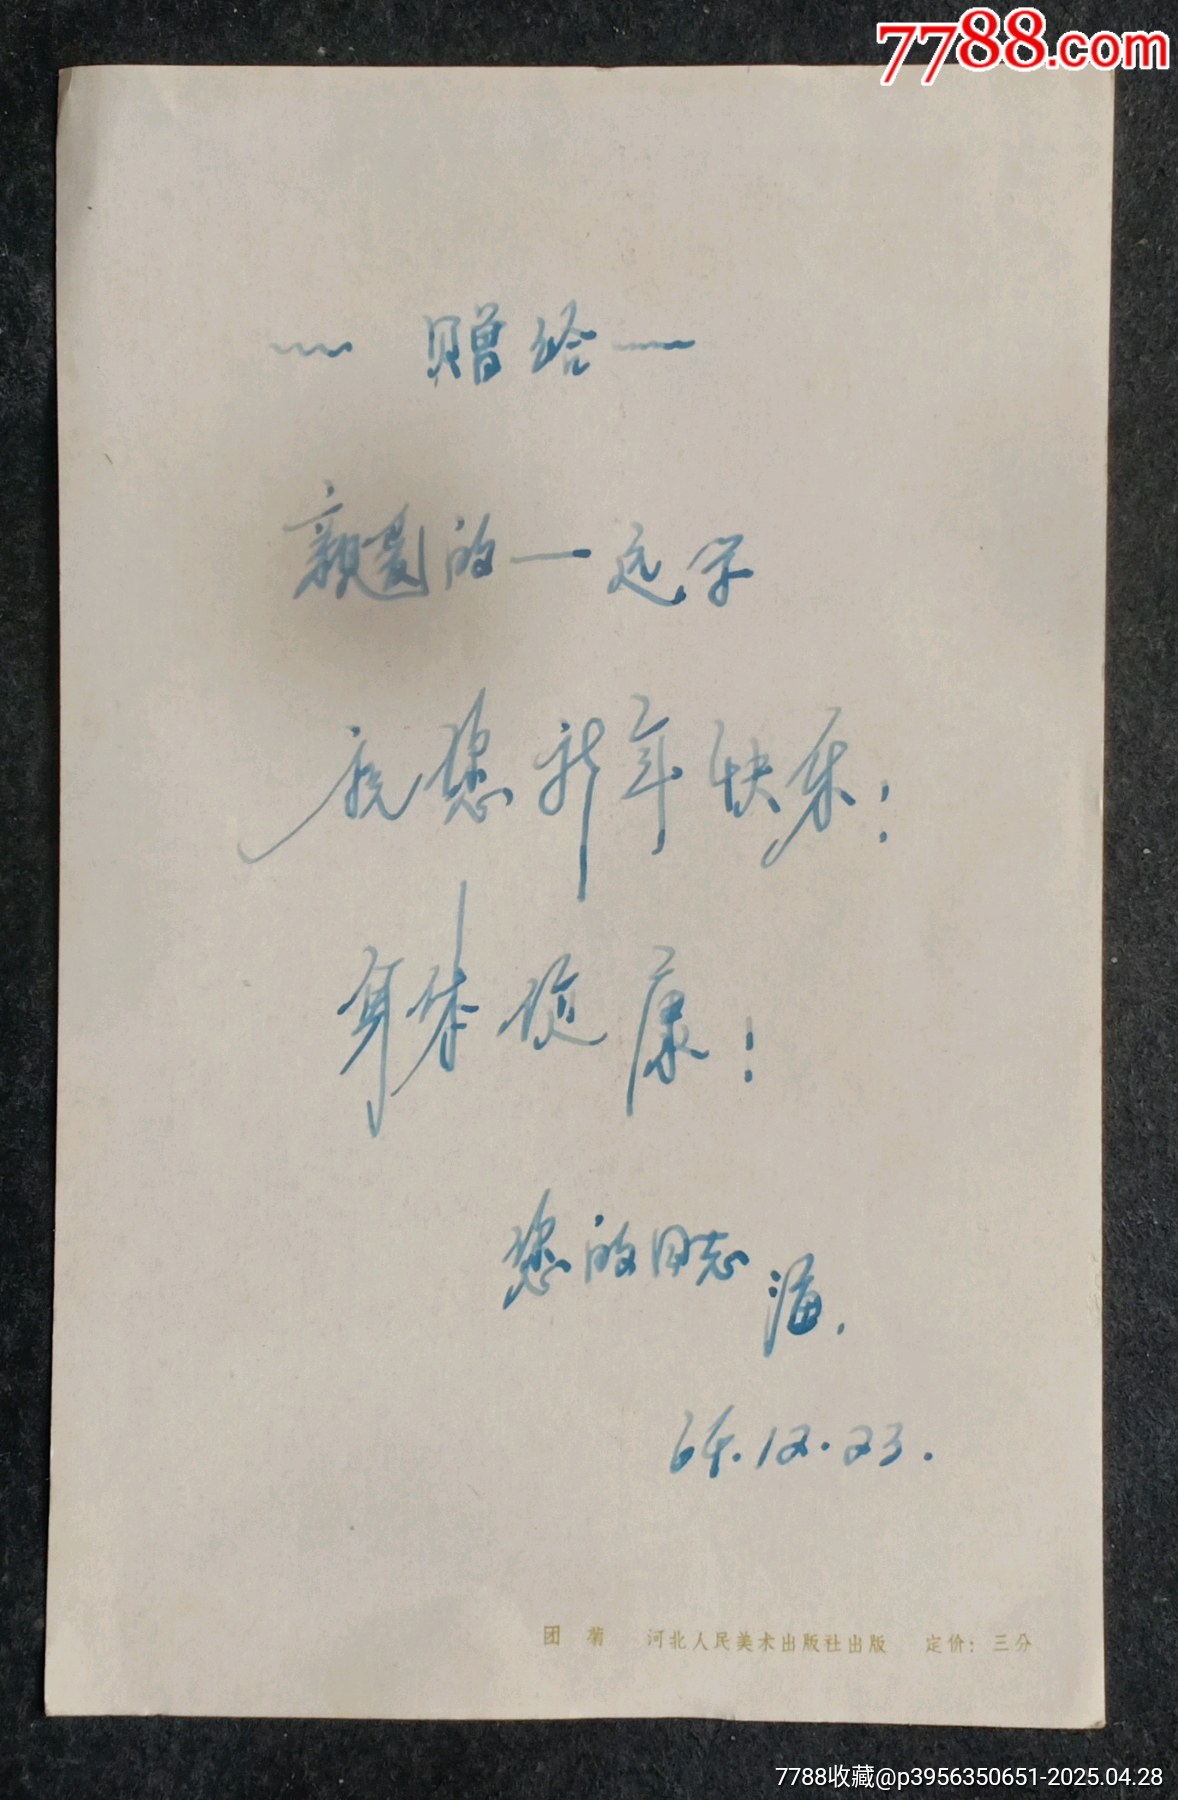 7788.com
~~ 赠给 —
亲爱的——远学
祝您新年快乐!
身体健康!
您的同志
海.
64.12.23.
团 菊 河北人民美术出版社出版 定价：三分
7788收藏@p3956350651-2025.04.28